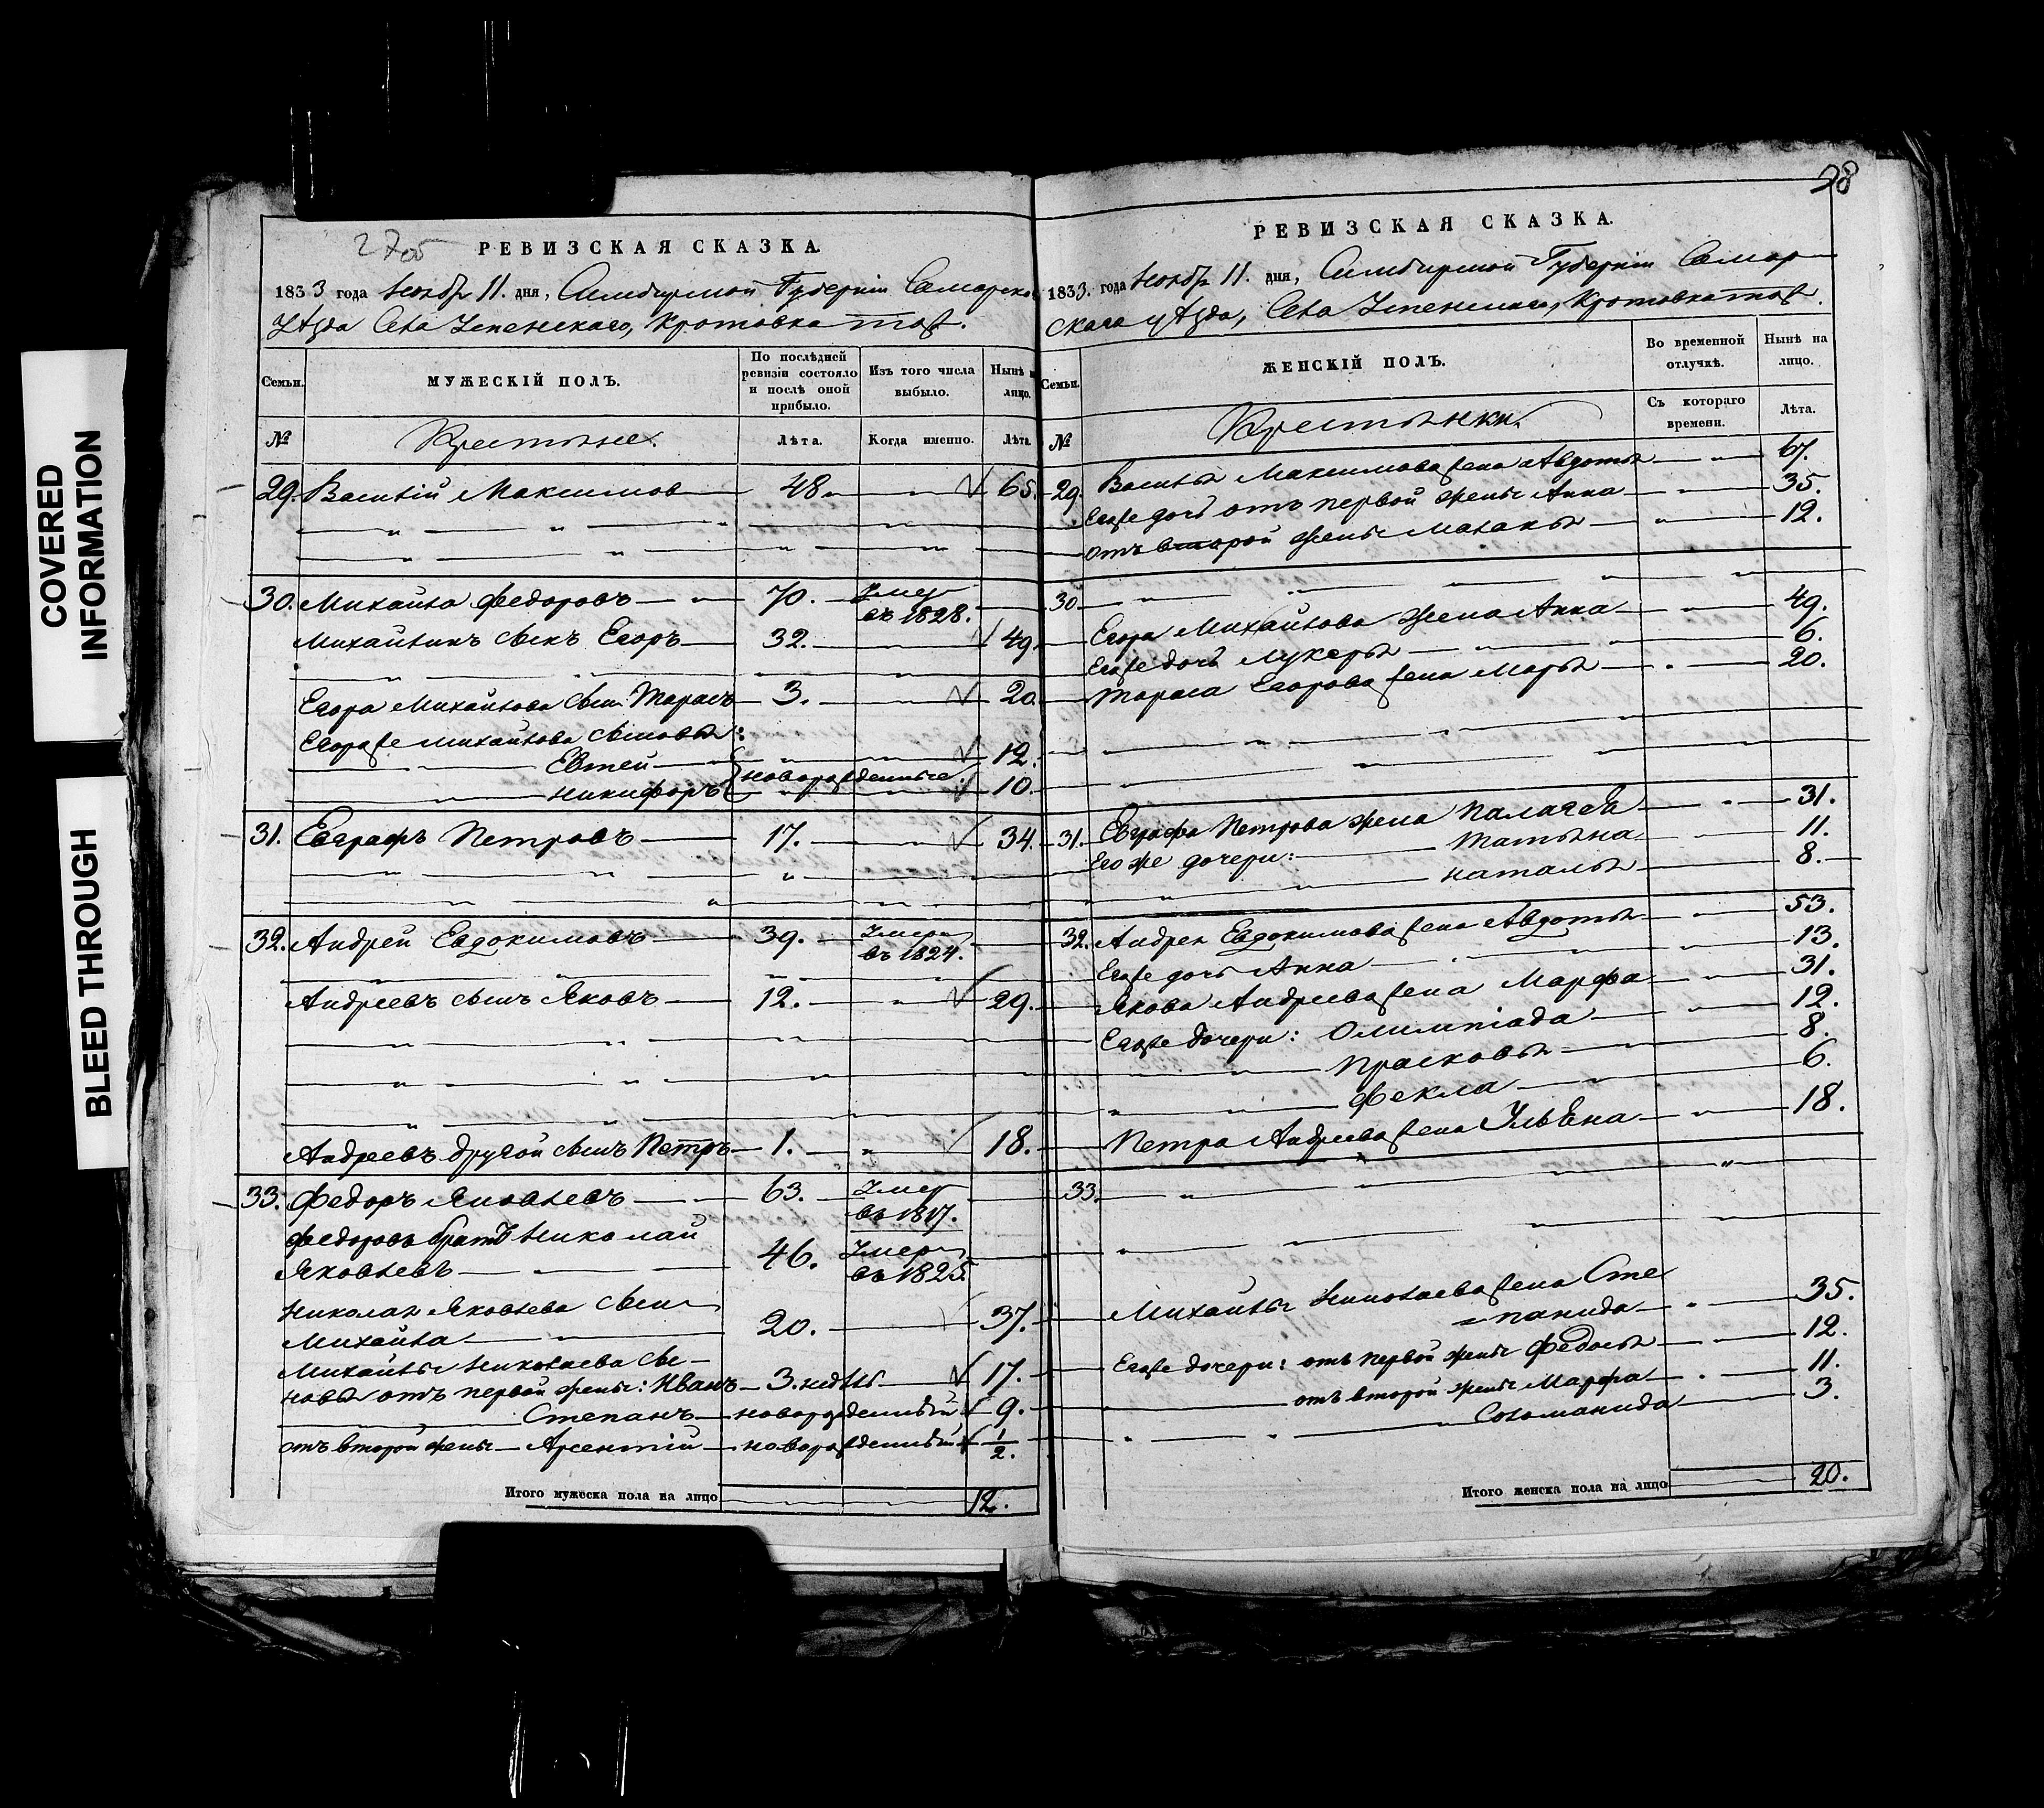 COVERED
INFORMATION
BLEED THROUGH
27об
РЕВИЗСКАЯ СКАЗКА.
1833 года Ноябр 11. дня, Симбирской Губернiи Самарска
уѣзда Села Успенскаго, Кротовка тож.
Семьи.
МУЖЕСКІЙ ПОЛЪ.
По послѣдней ревизіи состояло и послѣ оной прибыло.
Изъ того числа выбыло.
Нынѣ н лицо.
№
Крестьяне.
Лѣта.
Когда именно.
Лѣта.
29. Василій Максимов 48. 65.
30. Михайла Федоровъ 70. Умер въ 1828.
Михайлинъ сынъ Егоръ 32. 49.
Егора Михайлова сын Тарасъ 3. 20.
Егораже Михайлова сыновья:
Евтей 12.
новорожденные
Никифоръ 10.
31. Евграфъ Петровъ 17. 34.
32. Андрей Евдокимовъ 39. Умеръ въ 1824.
Андреевъ сынъ Яковъ 12. 29.
Андреевъ другой сынъ Петръ 1. 18.
33. Федоръ Яковлевъ 63. Умер въ 1817.
Федоровъ братъ Николай
Яковлевъ 46. Умеръ въ 1825.
Николая Яковлева сын
Михайла 20. 37.
Михайлы Николаева сы-
новья отъ первой жены: Иванъ 3. недѣль 17.
Степанъ новорожденный 9.
отъ второй жены Арсентій новорожденный 1/2.
Итого мужеска пола на лицо 12.
28
РЕВИЗСКАЯ СКАЗКА.
1833. года Ноябр 11. дня, Симбирской Губерніи Самар
скаго уѣзда, Села Успенскаго, Кротовка тож.
Семьи.
ЖЕНСКІЙ ПОЛЪ.
Во временной отлучкѣ.
Нынѣ на лицо.
№
Крестьянки.
Съ котораго времени.
Лѣта.
29. Василья Максимова жена Авдотья 67.
Егоже дочь отъ первой жены Анна 35.
отъ второй жены Маланья 12.
30
Егора Михайлова жена Анна 49.
Егоже дочь Лукерья 6.
Тараса Егорова жена Марья 20.
31. Евграфа Петрова жена Палагея 31.
Его же дочери: Татьяна 11.
Наталья 8.
32. Андрея Евдокимова жена Авдотья 53.
Егоже дочь Анна 13.
Якова Андреева жена Марфа 31.
Егоже дочери: Олимпіада 12.
Прасковья 8.
Фекла 6.
Петра Андреева жена Ульяна 18.
33.
Михайлы Николаева жена Сте
панида 35.
Егоже дочери: отъ первой жены Федосья 12.
отъ второй жены Марфа 11.
Соломанида 3.
Итого женска пола на лицо 20.